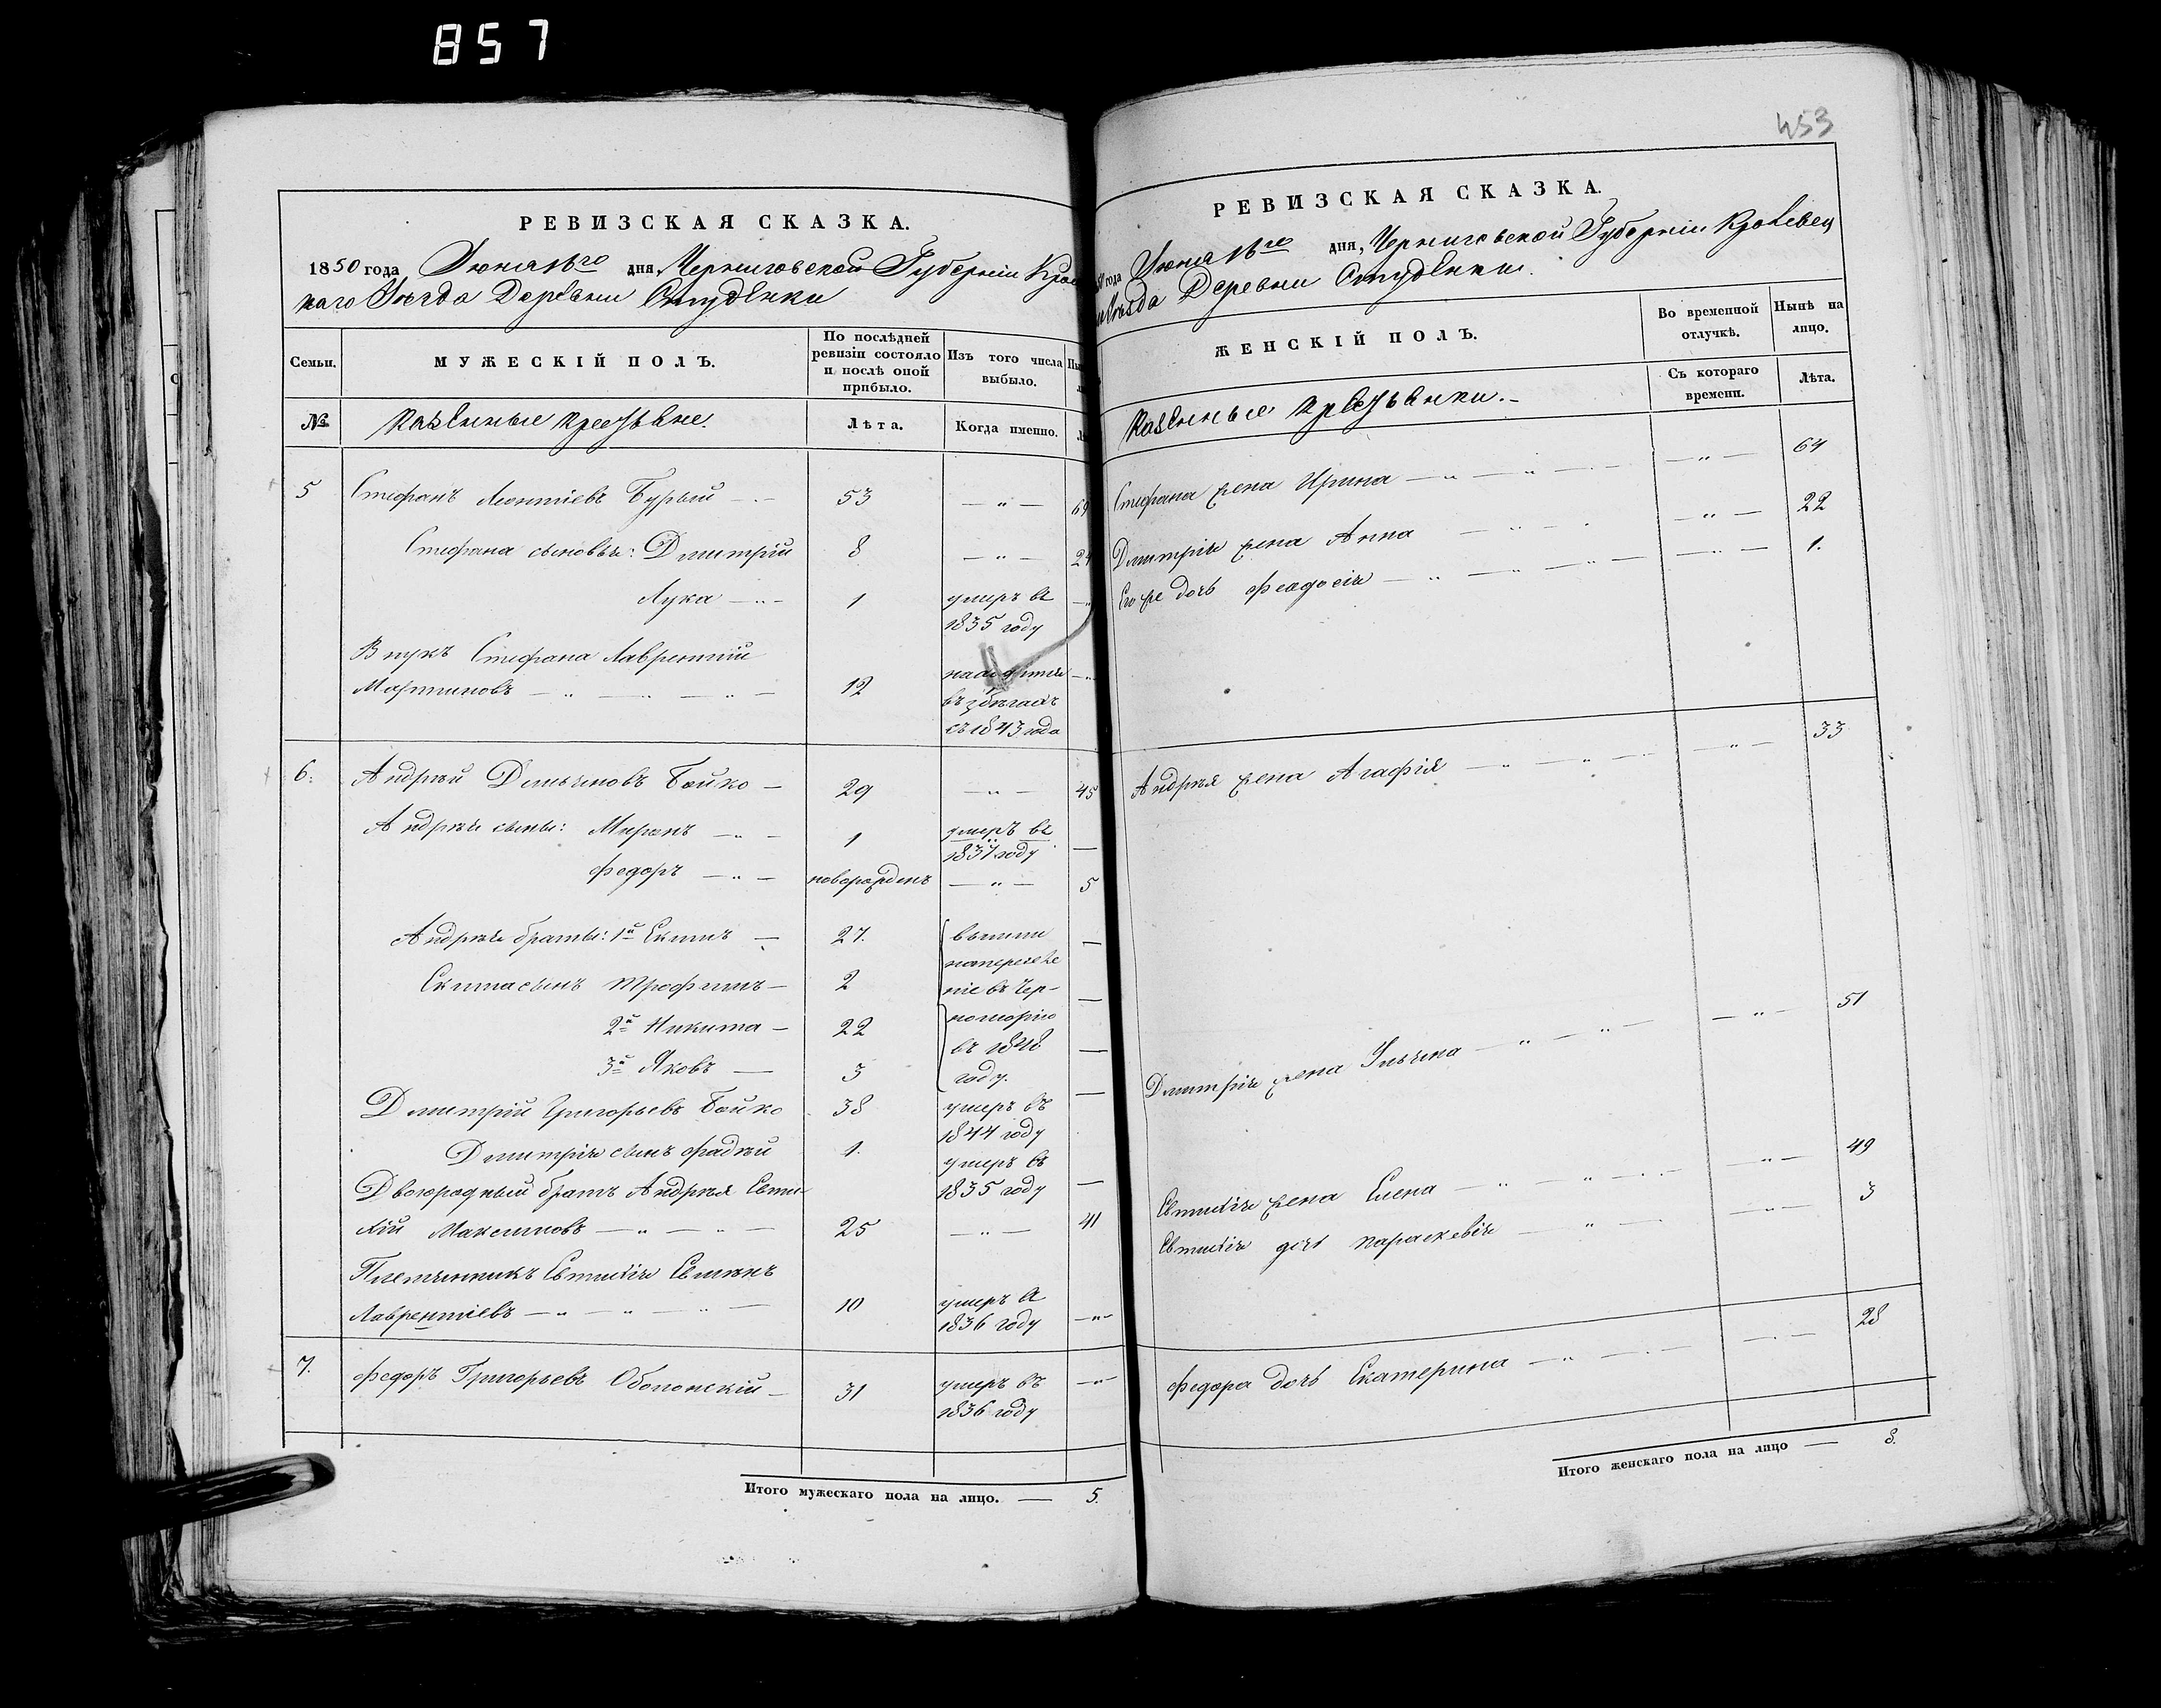 857
453
РЕВИЗСКАЯ СКАЗКА.
1850 года Июня 16го дня, Черниговской Губерніи Крол
каго Уѣзда Деревни Студенки
Семьи.
МУЖЕСКІЙ ПОЛЪ.
По послѣдней
ревизіи состояло
и послѣ оной
прибыло.
Изъ того числа
выбыло.
№
Казенные крестьяне.
Лѣта.
Когда именно.
5 Стефанъ Леонтіевъ Бурый — 53 — „ — 69
Стефана сыновья: Дмитрій 8 — „ — 24
Лука — „ — 1 умеръ въ
1835 году
Внукъ Стефана Лаврентій
Мартиновъ — „ — „ — „ — 12
въ бѣгахъ
съ 1843 года
6. Андрей Демьяновъ Бойко — 29 — „ — 45
Андрея сыны: Миронъ — „ — 1 умеръ въ
1837 году —
Федоръ — „ — новорожденъ — „ — 5
Андрея братья: 1й Екимъ — 27. вышли —
Екима сынъ Трофимъ — 2 на переселе
ніе въ Чер- —
2й Никита — 22 номорію
въ 1848 —
3й Яковъ — 3 году. —
Дмитрій Григорьевъ Бойко 38 умеръ въ
1844 году
Дмитрія сынъ Фадей 1. умеръ въ
1835 году —
Двоюродный братъ Андрея Евти-
хій Максимовъ — „ — „ — 25 — „ — 41
Племянникъ Евтихія
Лаврентіевъ — „ — „ — „ — 10 умеръ въ
1836 году — „ —
7. Федоръ Григорьевъ Оболонскій — 31 умеръ въ — „ —
1836 году
Итого мужескаго пола на лицо. — 5.
РЕВИЗСКАЯ СКАЗКА.
года Июня 16го дня, Черниговской Губерніи Кролевец
Уѣзда Деревни Студенки.
ЖЕНСКІЙ ПОЛЪ.
Во временной
отлучкѣ.
Нынѣ на
лицо.
Казенные крестьянки. —
Съ котораго
времени.
Лѣта.
Стефана жена Ирина — „ — „ — — „ — 64
Дмитрія жена Анна — „ — — „ — 22
Его же дочь Феодосія — „ — „ — „ — — „ — 1.
Андрея жена Агафія — „ — „ — — „ — 33
Дмитрія жена Ульяна — „ — „ — — „ — 51
Евтихія жена Елена — „ — „ — — „ — 49
Евтихія дочь Параскевія — „ — — „ — 3
Федора дочь Екатерина — „ — — — „ — 28
Итого женскаго пола на лицо — 8.